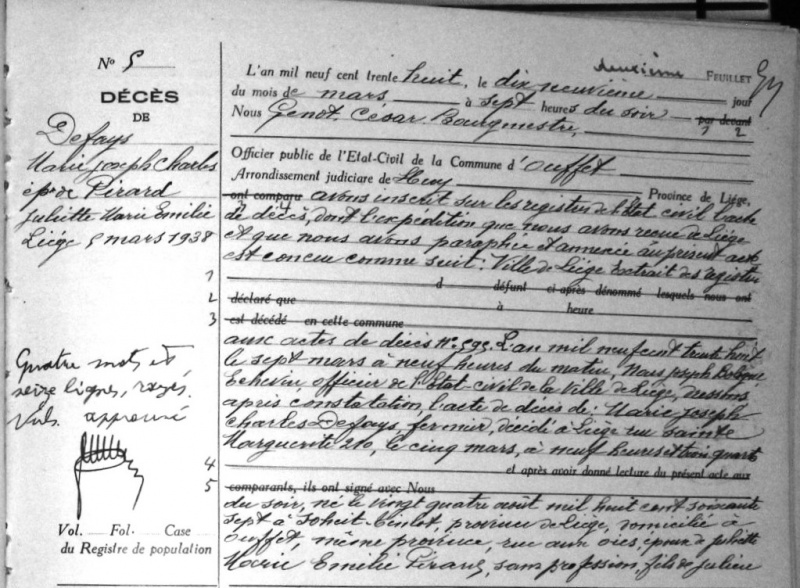 Nº 5
DÉCÈS
DE
Defays
Marie Joseph Charles
ép. de Pirard
Juliette Marie Emilie
Liége 5 mars 1938
1
2
3
Quatre mots et
seize lignes, rayés.
Nuls. approuvé
4
5
Vol. Fol. Case
du Registre de population
deuxième FEUILLET
L'an mil neuf cent trente huit, le dix neuvième jour
du mois de mars à sept heures du soir par devant
Nous Genot César Bourgmestre, 1 2
Officier public de l'Etat-Civil de la Commune d'Ouffet
Arrondissement judiciaire de Huy Province de Liége,
ont comparu avons inscrit sur les registres de l'Etat civil l'acte
3 4
de décès, dont l'expédition que nous avons reçue de Liége
et que nous avons paraphée et annexée au présent acte
est conçue comme suit: Ville de Liége Extrait des registres
d défunt ci-après dénommé lesquels nous ont
déclaré que à heure
est décédé en cette commune
aux actes de décès Nº 595. L'an mil neuf cent trente huit
le sept mars à neuf heures du matin, Nous Joseph Bologne
Echevin, officier de l'Etat-civil de la Ville de Liége, dressons
après constatation, l'acte de décès de: Marie Joseph
Charles Defays, fermier, décédé à Liége rue Sainte
Marguerite 210, le cinq mars, à neuf heures et trois quarts
et après avoir donné lecture du présent acte aux
comparants, ils ont signé avec Nous
du soir, né le vingt quatre août mil huit cent soixante
sept à Soheit-Tinlot, province de Liége, domicilié à
Ouffet, même province, rue aux oies, époux de Juliette
Marie Emilie Pirard, sans profession, fils de Julien